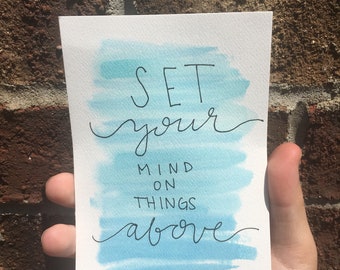 SET
your
MIND
ON
THINGS
above